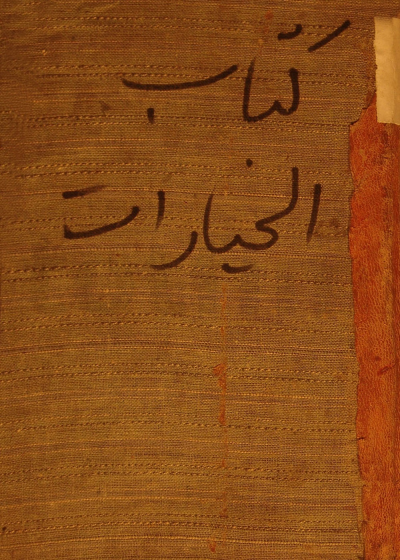 كتاب
الخيارات